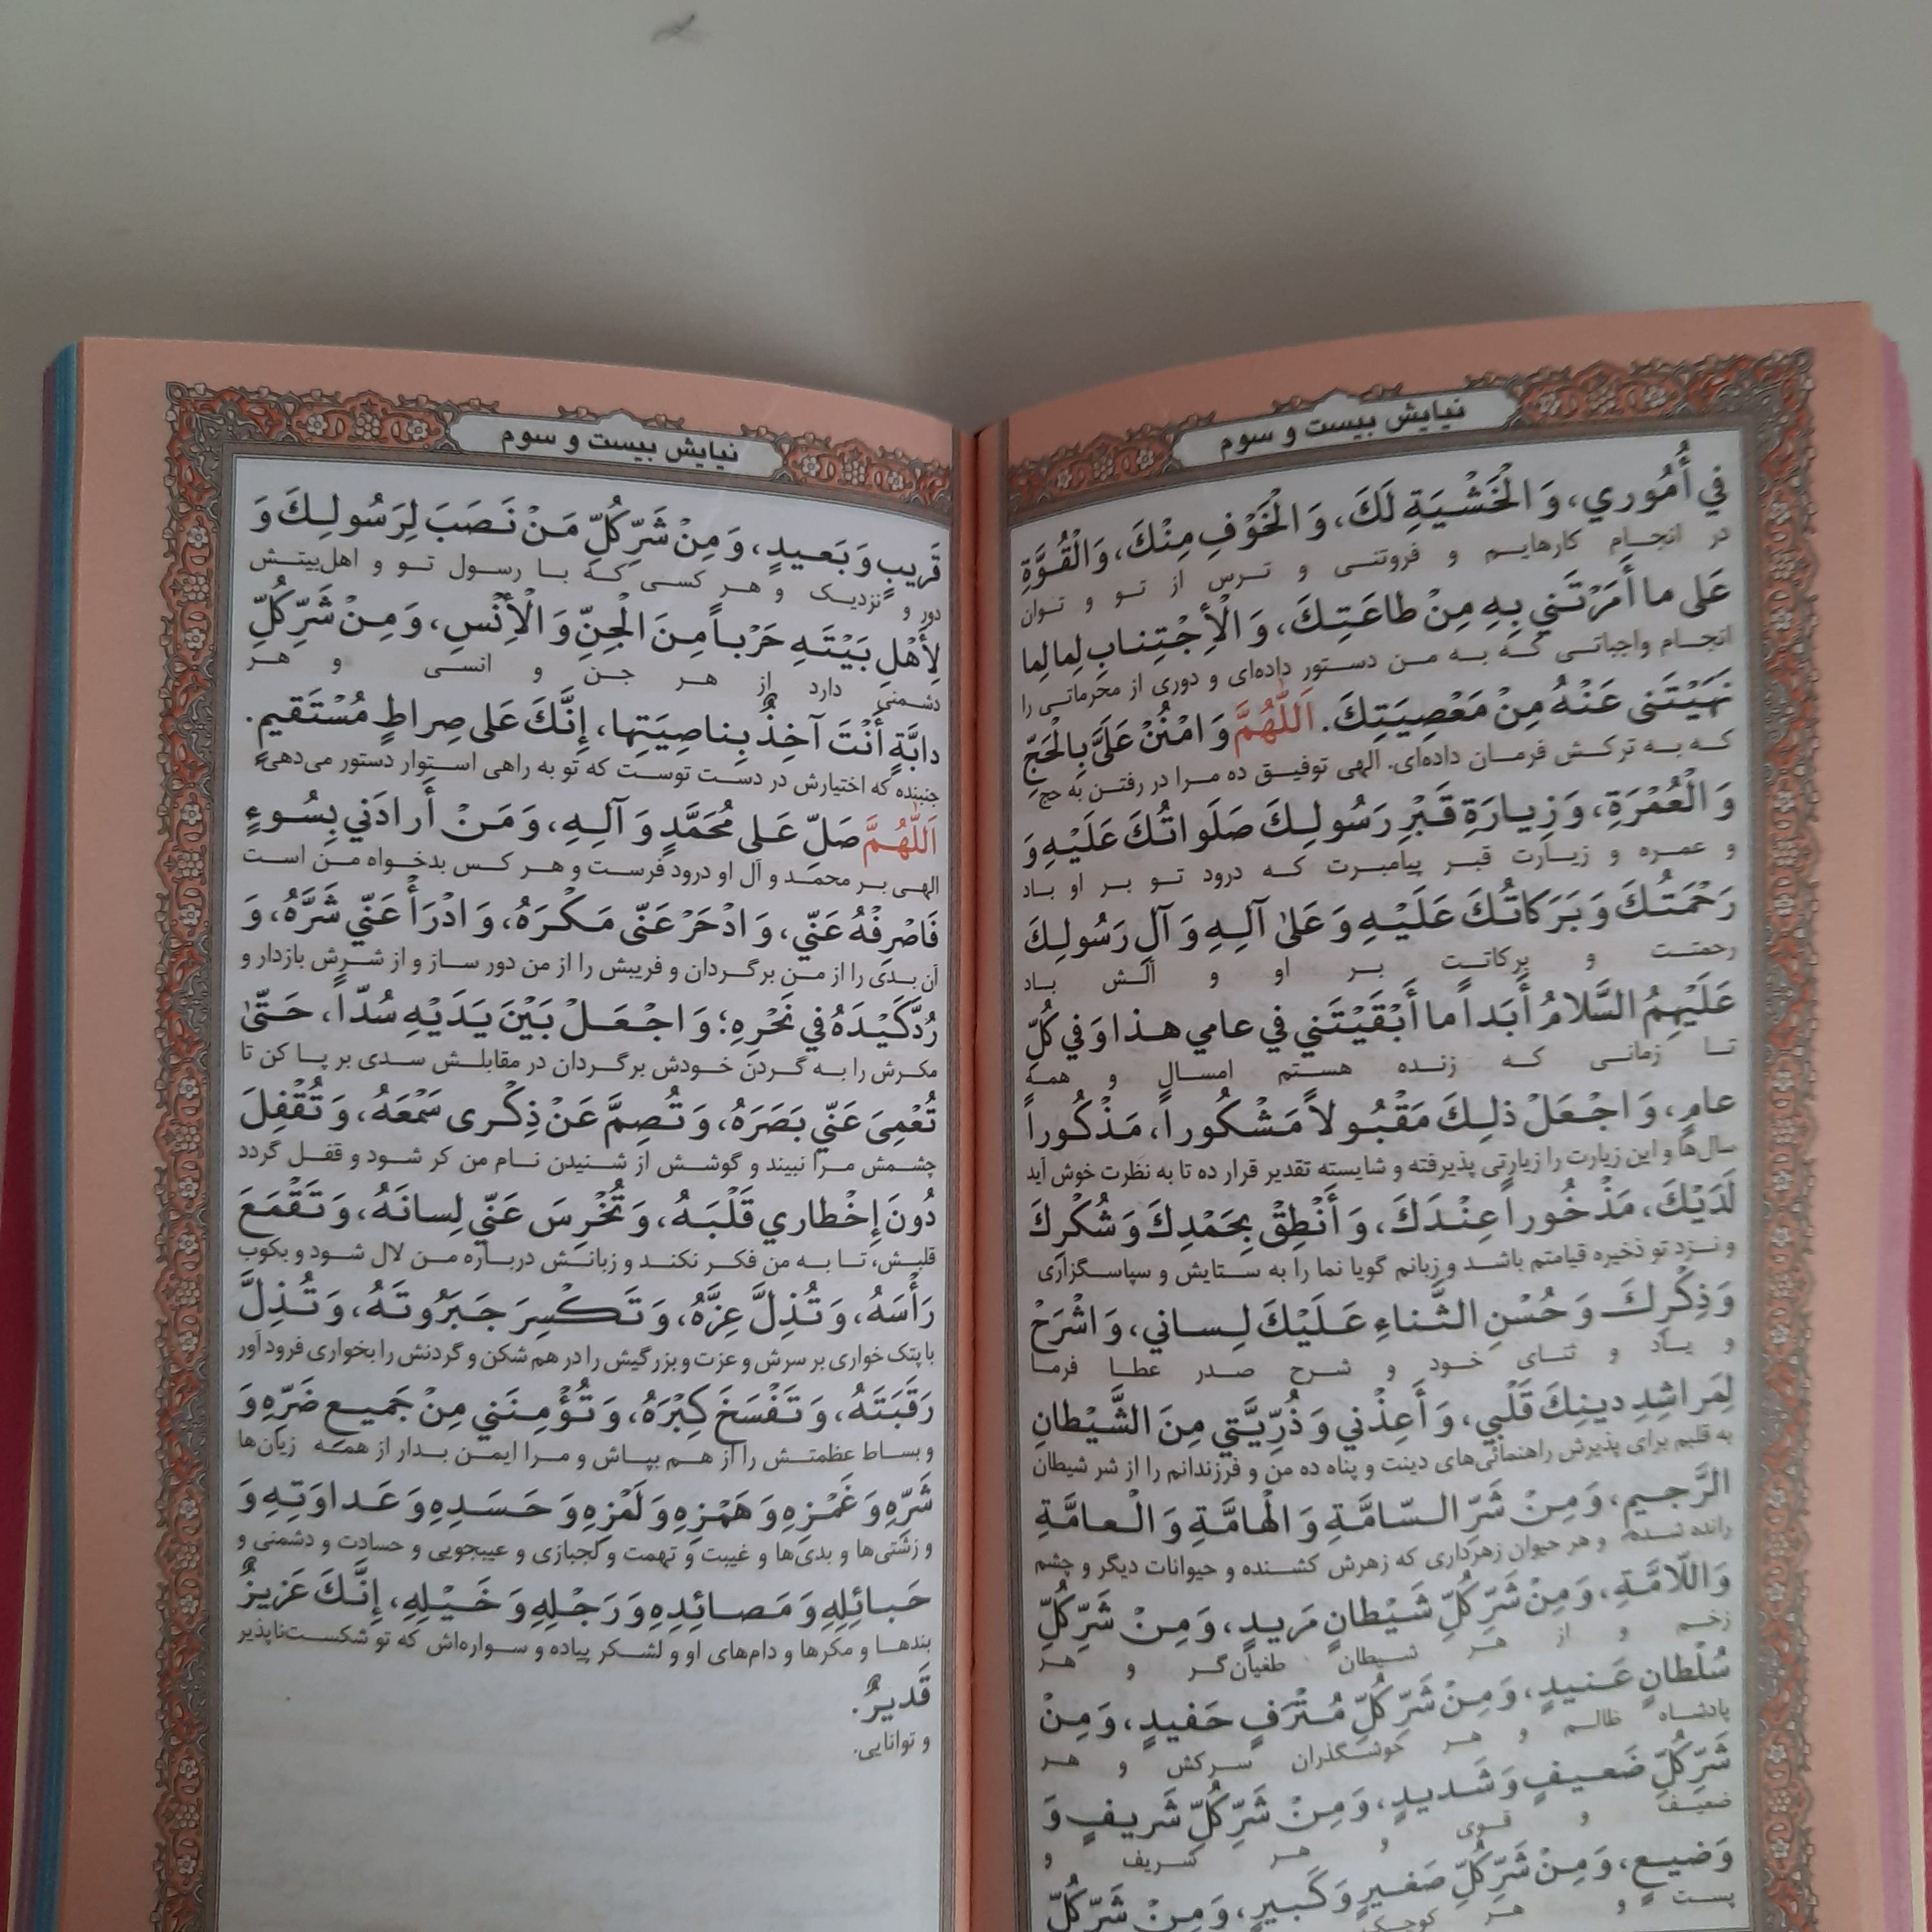 نیایش بیست و سوم
في أُمُوري، وَ الْخَشْيَةِ لَكَ، وَ الْخَوْفِ مِنْكَ، وَ الْقُوَّةِ
در انجـام کارهایـم و فروتنـی و تـرس از تـو و تـوان
عَلى ما أَمَرْتَني بِهِ مِنْ طاعَتِكَ، وَ الْاِجْتِنابِ لِما لِما
انجـام واجباتـی کـه بـه مـن دستور داده‌ای و دوری از محرماتـی را
نَهَيْتَنى عَنْهُ مِنْ مَعْصِيَتِكَ. اَللّٰهُمَّ وَ امْنُنْ عَلَىَّ بِالْحَجِّ
کـه بـه ترکش فرمـان داده‌ای. الهی توفیـق ده مـرا در رفتـن به حج
وَ الْعُمْرَةِ، وَ زِيارَةِ قَبْرِ رَسُولِكَ صَلَواتُكَ عَلَيْهِ وَ
و عمـره و زیـارت قبـر پیامبـرت کـه درود تـو بـر او بـاد
رَحْمَتُكَ وَ بَرَكاتُكَ عَلَيْهِ وَ عَلىٰ آلِهِ وَ آلِ رَسُولِكَ
رحمتـت و برکاتـت بـر او و آلـش بـاد
عَلَيْهِمُ السَّلامُ أَبَداً ما أَبْقَيْتَني في عامي هذا وَ في كُلِّ
تـا زمانـی کـه زنـده هسـتم امسـال و همـهٔ
عامٍ، وَ اجْعَلْ ذلِكَ مَقْبُولاً مَشْكُوراً، مَذْكُوراً
سال‌ها و این زیارت را زیارتی پذیرفته و شایسته تقدیر قرار ده تا به نظرت خوش آید
لَدَيْكَ، مَذْخُوراً عِنْدَكَ، وَ أَنْطِقْ بِحَمْدِكَ وَ شُكْرِكَ
و نـزد تو ذخیره قیامتم باشـد و زبانم گویا نما را به سـتایش و سپاسـگزاری
وَ ذِكْرِكَ وَ حُسْنِ الثَّناءِ عَلَيْكَ لِساني، وَ اشْرَحْ
و یـاد و ثنـای خـود و شـرح صـدر عطـا فرمـا
لِمَراشِدِ دينِكَ قَلْبي، وَ أَعِذْني وَ ذُرِّيَّتي مِنَ الشَّيْطانِ
به قلبم برای پذیرش راهنمائی‌های دینت و پناه ده من و فرزندانم را از شر شیطان
الرَّجيمِ، وَ مِنْ شَرِّ السّامَّةِ وَ الْهامَّةِ وَ الْعامَّةِ
رانده شـده و هر حیوان زهرداری که زهرش کشـنده و حیوانات دیگر و چشم
وَ اللّامَّةِ، وَ مِنْ شَرِّ كُلِّ شَيْطانٍ مَريدٍ، وَ مِنْ شَرِّ كُلِّ
زخـم و از هـر شـیطان طغیان‌گـر و هـر
سُلْطانٍ عَنيدٍ، وَ مِنْ شَرِّ كُلِّ مُتْرَفٍ حَفيدٍ، وَ مِنْ
پادشـاه ظالـم و هـر خوشـگذران سـرکش و هـر
شَرِّ كُلِّ ضَعيفٍ وَ شَديدٍ، وَ مِنْ شَرِّ كُلِّ شَريفٍ وَ
ضعیـف و قـوی و هـر شـریف و
وَضيعٍ، وَ مِنْ شَرِّ كُلِّ صَغيرٍ وَ كَبيرٍ، وَ مِنْ شَرِّ كُلِّ
پسـت و هـر کوچـک
نیایش بیست و سوم
قَريبٍ وَ بَعيدٍ، وَ مِنْ شَرِّ كُلِّ مَنْ نَصَبَ لِرَسُولِكَ وَ
دور و نزدیـک و هـر کسـی کـه بـا رسـول تـو و اهل‌بیتـش
لِأَهْلِ بَيْتِهِ حَرْباً مِنَ الْجِنِّ وَ الْاِنْسِ، وَ مِنْ شَرِّ كُلِّ
دشـمنی دارد از هـر جـن و انسـی و هـر
دابَّةٍ أَنْتَ آخِذٌ بِناصِيَتِها، إِنَّكَ عَلى صِراطٍ مُسْتَقيمٍ.
جنبنده که اختیارش در دسـت توسـت که تو به راهی اسـتوار دستور می‌دهی
اَللّٰهُمَّ صَلِّ عَلى مُحَمَّدٍ وَ آلِهِ، وَ مَنْ أَرادَني بِسُوءٍ
الهـی بـر محمّـد و آل او درود فرسـت و هـر کـس بدخـواه مـن اسـت
فَاصْرِفْهُ عَنّي، وَ ادْحَرْ عَنّى مَكْرَهُ، وَ ادْرَأْ عَنّي شَرَّهُ، وَ
آن بـدی را از مـن برگـردان و فریبش را از من دور سـاز و از شـرش بازدار و
رُدَّ كَيْدَهُ في نَحْرِهِ؛ وَ اجْعَلْ بَيْنَ يَدَيْهِ سُدّاً، حَتّىٰ
مکـرش را بـه گـردن خـودش برگـردان در مقابلـش سـدی بر پـا کن تا
تُعْمِىَ عَنّي بَصَرَهُ، وَ تُصِمَّ عَنْ ذِكْرى سَمْعَهُ، وَ تُقْفِلَ
چشـمش مـرا نبیند و گوشـش از شـنیدن نـام من کر شـود و قفـل گردد
دُونَ إِخْطاري قَلْبَهُ، وَ تُخْرِسَ عَنّي لِسانَهُ، وَ تَقْمَعَ
قلبـش، تـا بـه من فکـر نکنـد و زبانـش دربـاره مـن لال شـود و بکوب
رَأْسَهُ، وَ تُذِلَّ عِزَّهُ، وَ تَكْسِرَ جَبَرُوتَهُ، وَ تُذِلَّ
با پتک خواری بر سرش و عزت و بزرگیش را در هم شکن و گردنش را بخواری فرود آور
رَقَبَتَهُ، وَ تَفْسَخَ كِبْرَهُ، وَ تُؤْمِنَني مِنْ جَميعِ ضَرِّهِ وَ
و بسـاط عظمتـش را از هـم بپـاش و مـرا ایمـن بـدار از همـه زیان‌ها
شَرِّهِ وَ غَمْزِهِ وَ هَمْزِهِ وَ لَمْزِهِ وَ حَسَدِهِ وَ عَداوَتِهِ وَ
و زشتی‌ها و بدی‌ها و غیبت و تهمت و لجبازی و عیبجویی و حسادت و دشمنی و
حَبائِلِهِ وَ مَصائِدِهِ وَ رَجْلِهِ وَ خَيْلِهِ، إِنَّكَ عَزيزٌ
بندهـا و مکرها و دام‌های او و لشـکر پیاده و سـواره‌اش که تو شکسـت‌ناپذیر
قَديرٌ.
و توانایی.